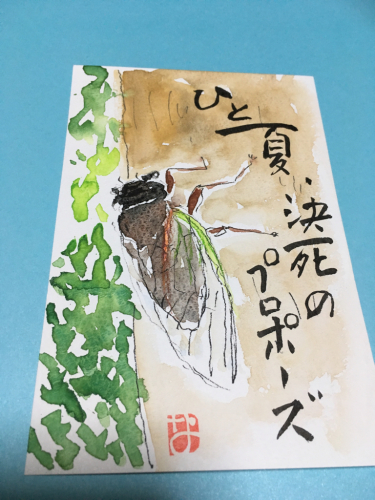 ひと夏、
決死の
プロポーズ
は